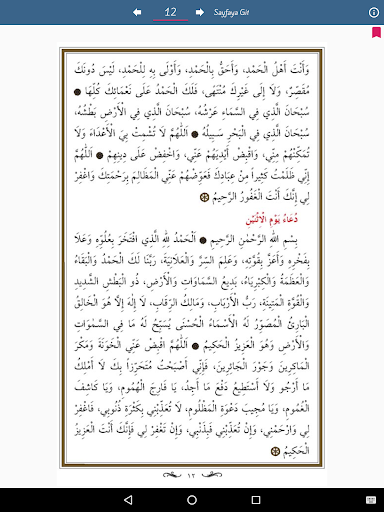 12
Sayfaya Git
وَأَنْتَ أَهْلُ الْحَمْدِ، وَأَحَقُّ بِالْحَمْدِ، وَأَوْلَى بِهِ لِلْحَمْدِ، لَيْسَ دُونَكَ
مُقَصِّرٌ، وَلَا إِلَى غَيْرِكَ مُنْتَهَى، فَلَكَ الْحَمْدُ عَلَى نَعْمَائِكَ كُلِّهَا
سُبْحَانَ الَّذِي فِي السَّمَاءِ عَرْشُهُ، سُبْحَانَ الَّذِي فِي الْأَرْضِ بَطْشُهُ،
سُبْحَانَ الَّذِي فِي الْبَحْرِ سَبِيلُهُ اَللَّهُمَّ لَا تُشْمِتْ بِيَ الْأَعْدَاءَ وَلَا
تُمَكِّنْهُمْ مِنِّي، وَاقْبِضْ أَيْدِيَهُمْ عَنِّي، وَاخْفِضْ عَلَى دِينِهِمْ اَللَّهُمَّ
إِنِّي ظَلَمْتُ كَثِيراً مِنْ عِبَادِكَ فَعَوِّضْهُمْ عَنِّي الْمَظَالِمَ بِرَحْمَتِكَ وَاغْفِرْ
لِي إِنَّكَ أَنْتَ الْغَفُورُ الرَّحِيمُ
دُعَاءُ يَوْمِ الْاِثْنَيْنِ
بِسْمِ اللهِ الرَّحْمٰنِ الرَّحِيمِ اَلْحَمْدُ لِلَّهِ الَّذِي افْتَخَرَ بِعُلُوِّهِ وَعَلَا
بِفَخْرِهِ وَأَعَزَّ بِقُوَّتِهِ، وَعَلِمَ السِّرَّ وَالْعَلَانِيَةَ، رَبَّنَا لَكَ الْحَمْدُ وَالْبَقَاءُ
وَالْعَظَمَةُ وَالْكِبْرِيَاءُ، بَدِيعُ السَّمَاوَاتِ وَالْأَرْضِ، ذُو الْبَطْشِ الشَّدِيدِ
وَالْقُوَّةِ الْمَتِينَةِ، رَبُّ الْأَرْبَابِ، وَمَالِكُ الرِّقَابِ، لَا إِلٰهَ إِلَّا هُوَ الْخَالِقُ
الْبَارِئُ الْمُصَوِّرُ لَهُ الْأَسْمَاءُ الْحُسْنَى يُسَبِّحُ لَهُ مَا فِي السَّمٰوَاتِ
وَالْأَرْضِ وَهُوَ الْعَزِيزُ الْحَكِيمُ اَللَّهُمَّ اقْبِضْ عَنِّي الْخَوَنَةَ وَمَكْرَ
الْمَاكِرِينَ وَجَوْرَ الْجَائِرِينَ، فَإِنِّي أَصْبَحْتُ مُتَحَرِّزاً بِكَ لَا أَمْلِكُ
مَا أَرْجُو وَلَا أَسْتَطِيعُ دَفْعَ مَا أَجِدُ، يَا فَارِجَ الْهُمُومِ، وَيَا كَاشِفَ
الْغُمُومِ، وَيَا مُجِيبَ دَعْوَةِ الْمَظْلُومِ، لَا تُعَذِّبْنِي بِكَثْرَةِ ذُنُوبِي، فَاغْفِرْ
لِي وَارْحَمْنِي، وَإِنْ تُعَذِّبْنِي فَبِذَنْبِي، وَإِنْ تَغْفِرْ لِي فَإِنَّكَ أَنْتَ الْعَزِيزُ
الْحَكِيمُ
١٢